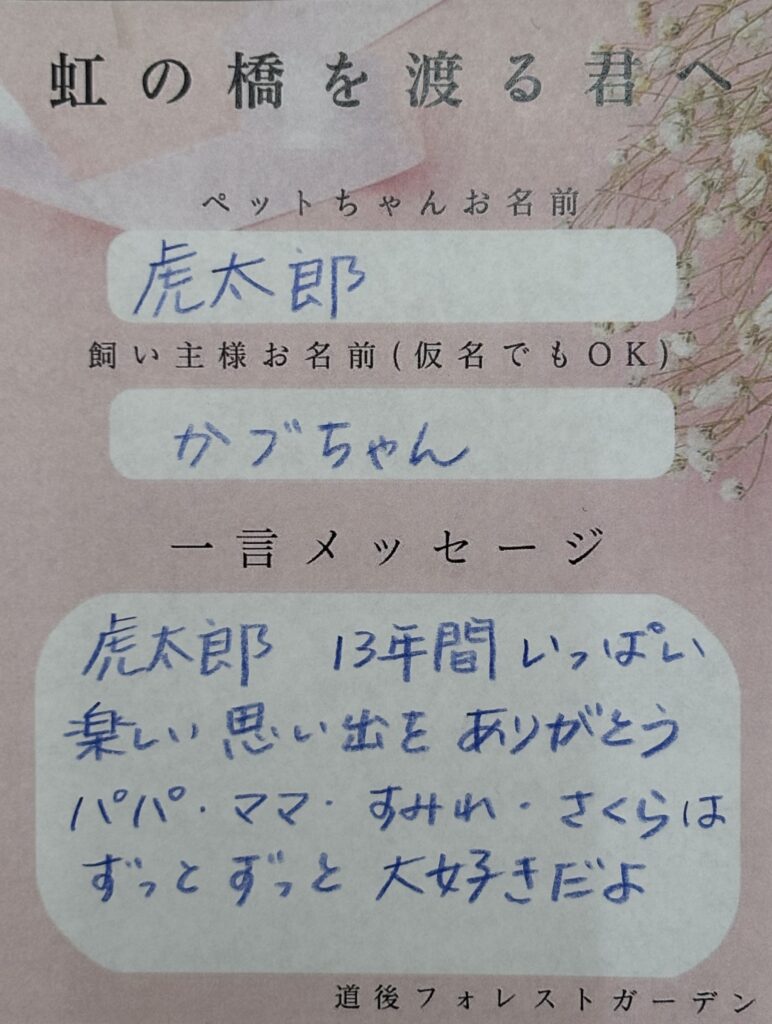 虹の橋を渡る君へ
ペットちゃんお名前
虎太郎
飼い主様お名前(仮名でもOK)
かブちゃん
一言メッセージ
虎太郎 13年間 いっぱい
楽しい 思い出を ありがとう
パパ・ママ・すみれ・さくらは
ずっと ずっと 大好きだよ
道後フォレストガーデン